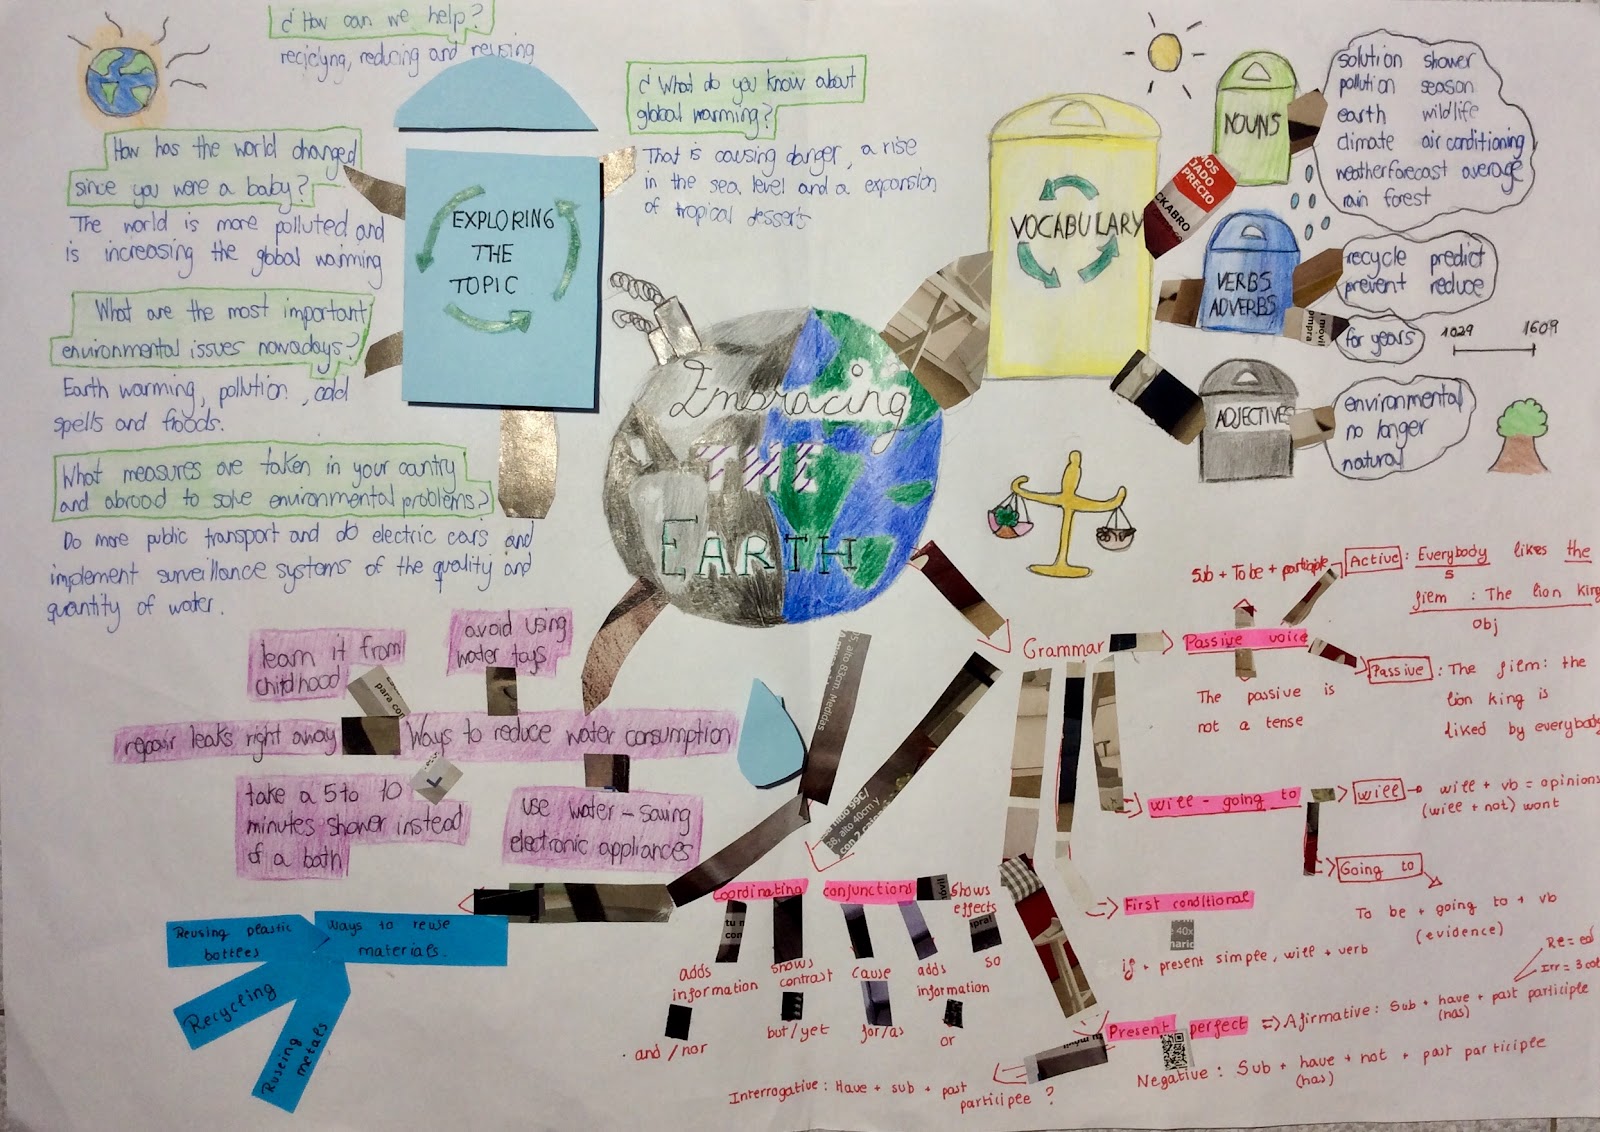 ¿How can we help?
reciclyng, reducing and reusing
How has the world changed
since you were a baby?
The world is more polluted and
is increasing the global warming
What are the most important
environmental issues nowadays?
Earth warming, pollution, cold
spells and floods.
What measures are taken in your country
and abroad to solve environmental problems?
Do more public transport and do electric cars and
implement surveillance systems of the quality and
quantity of water.
EXPLORING
THE
TOPIC
¿What do you know about
global warming?
That is causing danger, a rise
in the sea level and a expansion
of tropical desserts
Embracing
THE
EARTH
VOCABULARY
NOUNS
solution shower
pollution season
earth wildlife
climate air conditioning
weatherforecast average
rain forest
VERBS
ADVERBS
recycle predict
prevent reduce
for years
1029 1609
ADJECTIVES
environmental
no longer
natural
PRECIO
CKABRO
learn it from
childhood
avoid using
water toys
repair leaks right away
Ways to reduce water consumption
take a 5 to 10
minutes shower instead
of a bath
use water-saving
electronic appliances
para con
Reusing plastic
bottles
Ways to reuse
materials.
Recycling
Reusing
metals
Coordinating conjunctions
shows
effects
so
adds
information
and / nor
shows
contrast
but / yet
cause
for/as
adds
information
or
Grammar
Passive voice
Sub + To be + participle
The passive is
not a tense
Active : Everybody likes the
S
film : The lion king
Obj
Passive : The film: the
lion king is
liked by everybody
will - going to
will will + vb = opinions
(will + not) wont
Going to
To be + going to + vb
(evidence)
First conditional
if + present simple, will + verb
Present perfect => Afirmative: Sub + have + past participle
(has)
Re = ed
Irr = 3 col
Negative : Sub + have + not + past participle
(has)
Interrogative : Have + sub + past
participle ?